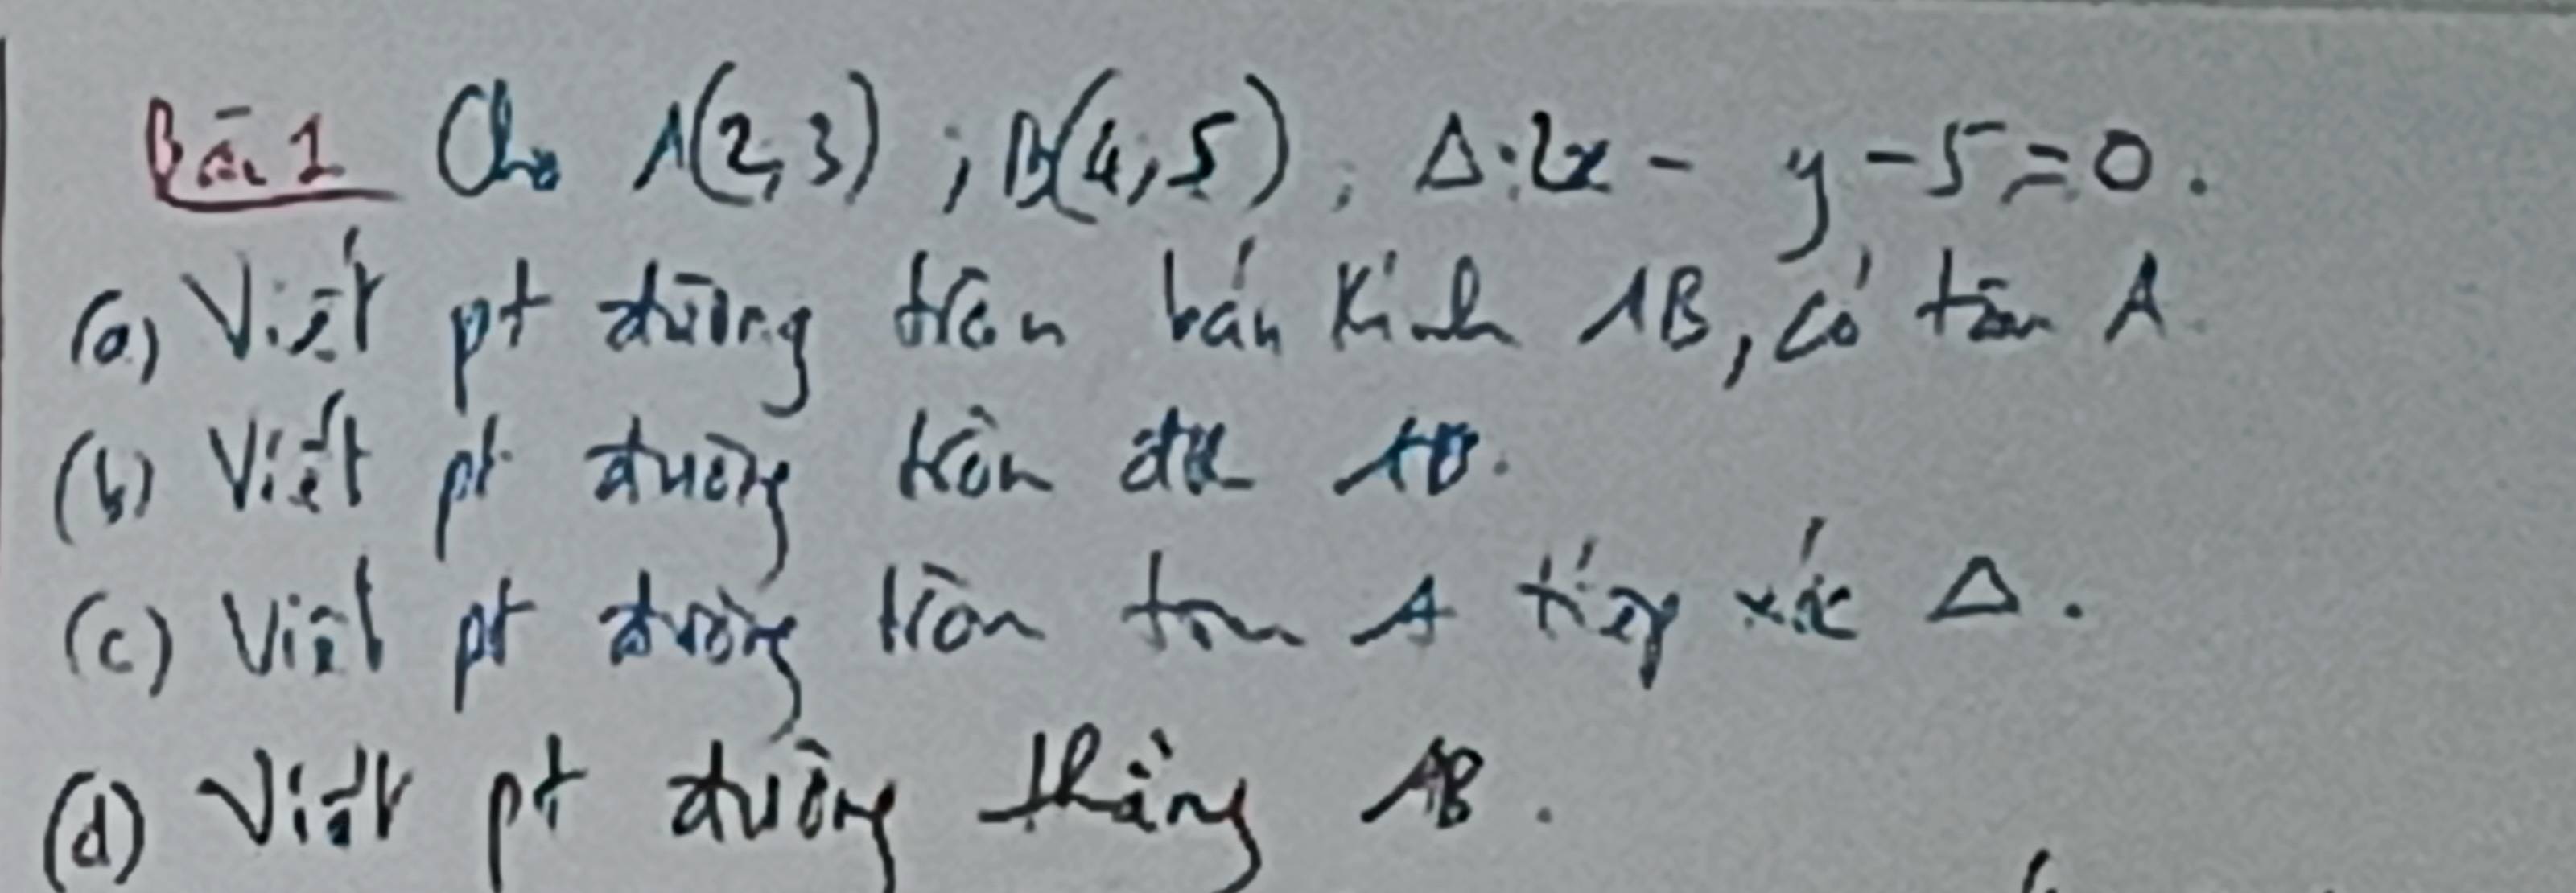 Bài 1 Cho A(2,3) ; B(4,5), Δ: 2x - y - 5 = 0.
(a) Viết pt đường tròn bán kính AB, có tâm A.
(b) Viết pt đường tròn đk AB.
(c) Viết pt đường tròn tâm A tiếp xúc Δ.
(d) Viết pt đường thẳng AB.